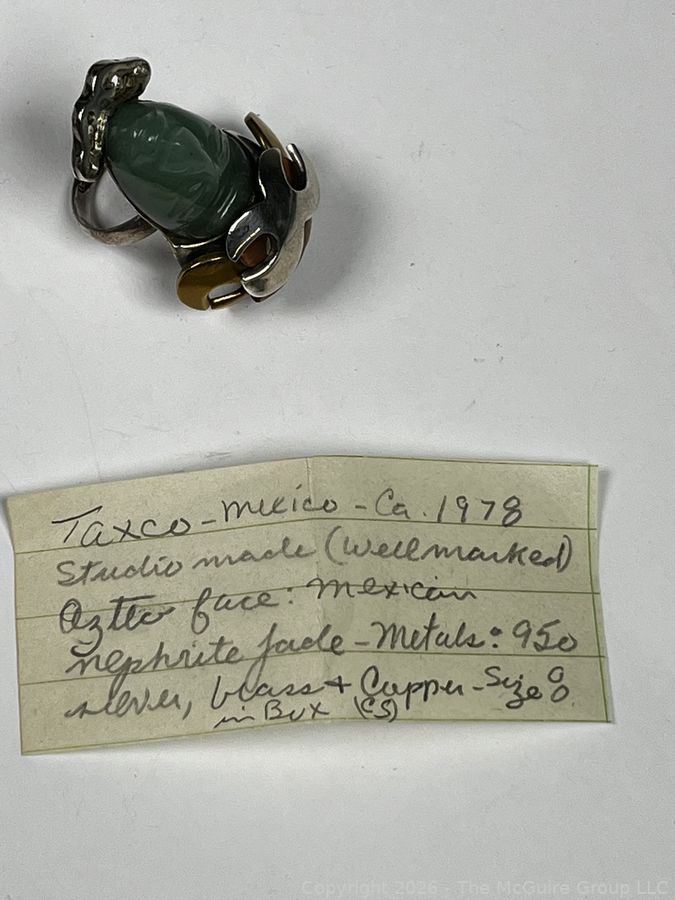 Taxco - Mexico - Ca. 1978
Studio made (Well marked)
Aztec face: Mexican
nephrite jade - Metals: 950
silver, brass + Copper - Size 8
in Box (CS)
Copyright 2026 - The McGuire Group LLC